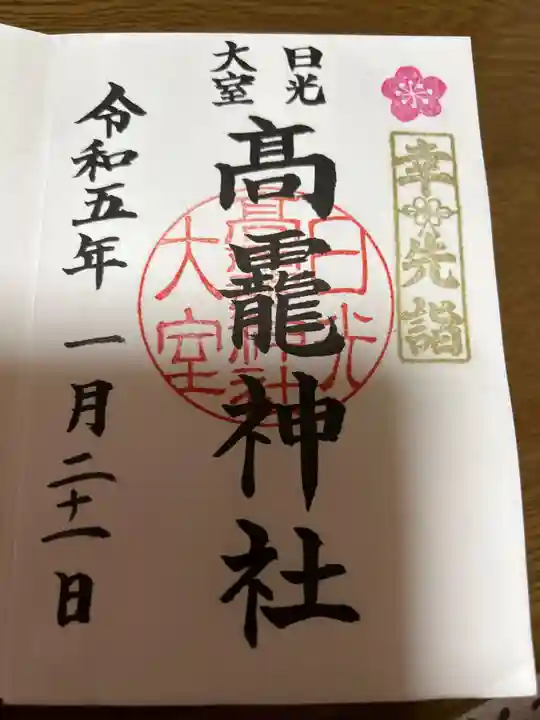 幸先詣
日光
大室
髙龗神社
日光
髙龗神社
大室
令和五年 一月二十一日